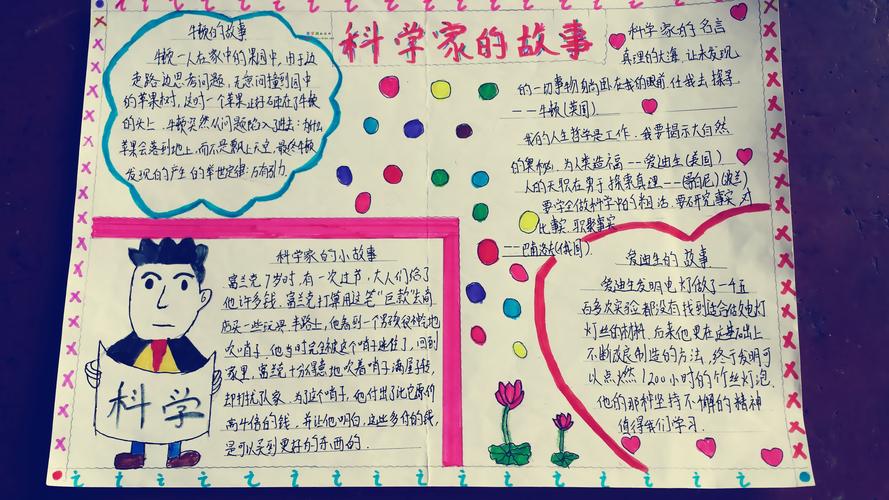 科学家的故事
牛顿的故事
牛顿一人在家中的果园中,由于边
走路边思考问题,无意间撞到园中
的苹果树,这时一个苹果正好砸在了牛顿
的头上,牛顿突然从问题陷入了进去:为什么
苹果会落到地上,而不是飘上天空,最终牛顿
发现的产生的举世定律:万有引力。
科学家的名言
真理的大海,让未发现
的一切事物躺卧在我的眼前,任我去探寻
——牛顿(英国)
我的人生哲学是工作,我要揭示大自然
的奥秘,为人类造福——爱迪生(美国)
人的天职在勇于探索真理——(哥白尼)(波兰)
要学会做科学中的粗活,要研究事实,对
比事实,积聚事实
——巴甫洛夫(俄国)
科学家的小故事
富兰克7岁时,有一次过节,大人们给了
他许多钱,富兰克打算用这笔“巨款”去商
店买一些玩具,半路上,他看到一个男孩很神气地
吹哨子,他当时完全被这个哨子迷住了,回到
家里,富兰克十分得意地吹着哨子满屋子转,
却打扰了家人,为了这个哨子,他付出了比它原价
高4倍的钱,并让他明白,这些多付的钱,
是可以买到更好的东西的.
科学
爱迪生的故事
爱迪生发明电灯做了一千五
百多次实验都没有找到适合做电灯
灯丝的材料,后来他又在这基础上
不断改良制造的方法,终于发明可
以点燃1200小时的竹丝灯泡.
他的那种坚持不懈的精神
值得我们学习.